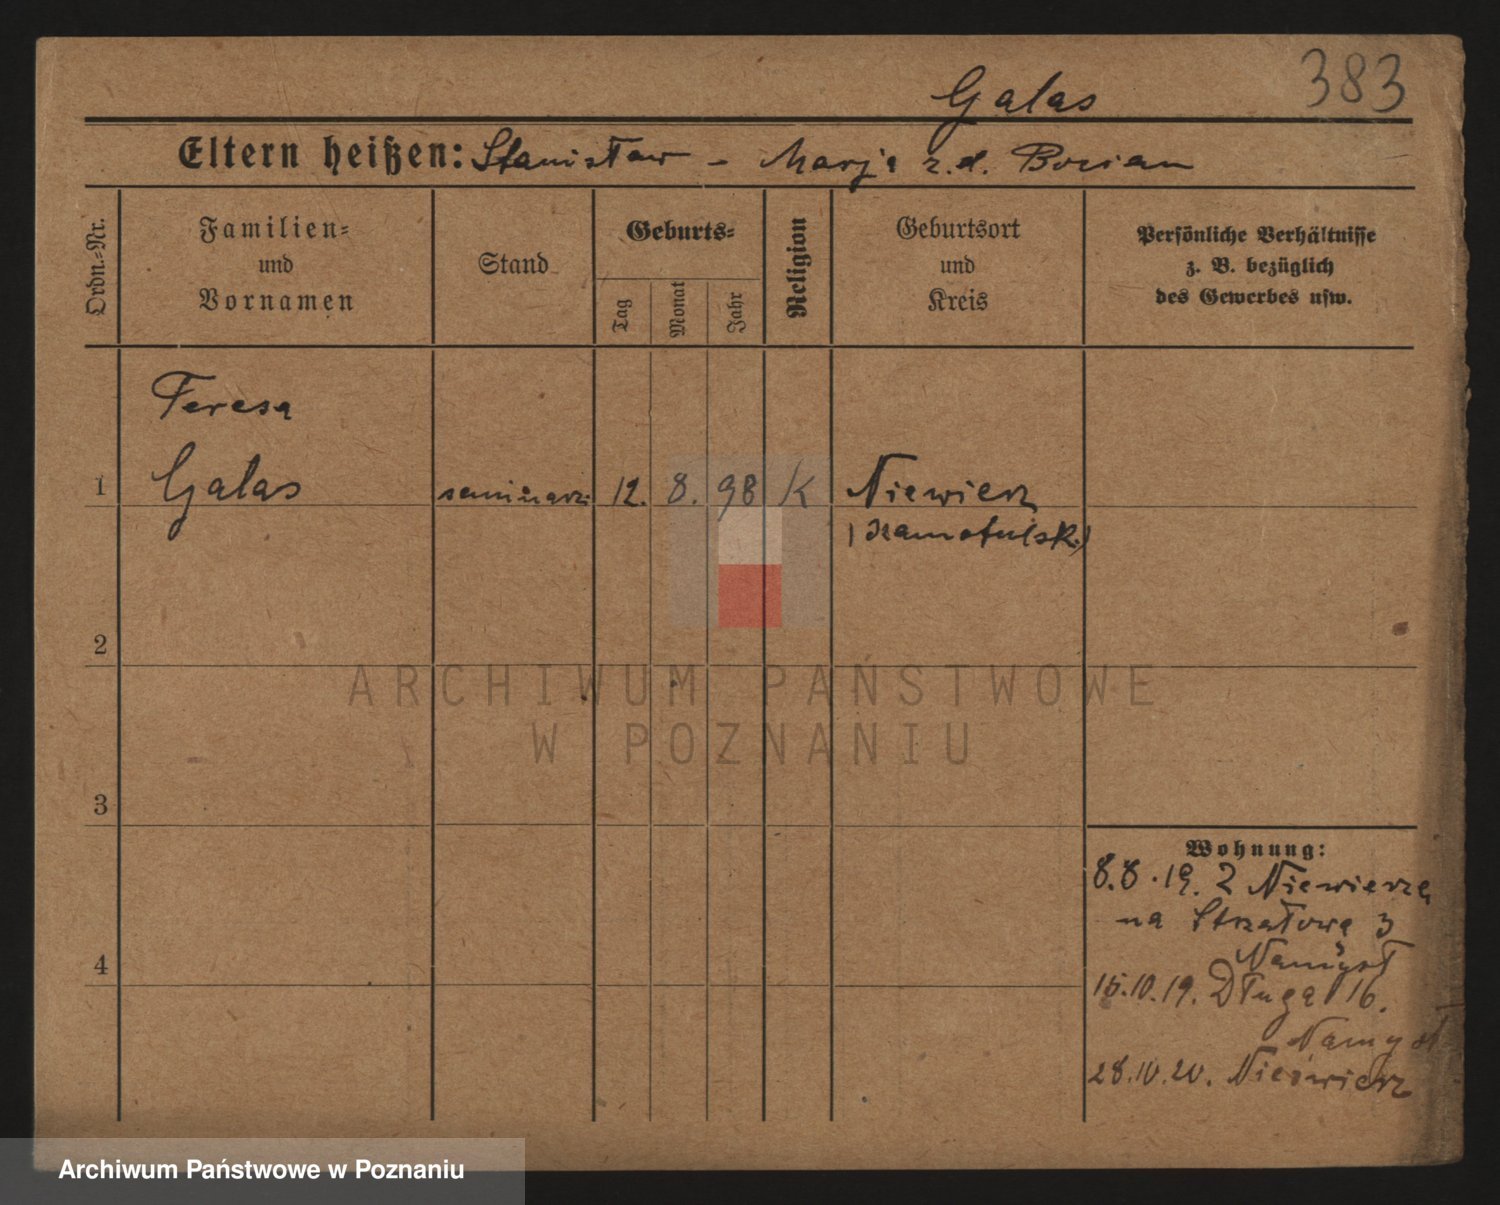 383
Galas
Eltern heißen: Stanisław - Marja z.d. Borian
Ordn.-Nr.
Familien-
und
Vornamen
Stand
Geburts-
Tag
Monat
Jahr
Religion
Geburtsort
und
Kreis
Persönliche Verhältnisse
z. B. bezüglich
des Gewerbes usw.
Teresa
1 Galas seminarz. 12. 8. 98 K Niewierz
(szamotulski)
2
ARCHIWUM PAŃSTWOWE
W POZNANIU
3
Wohnung:
8.8.19. Z Niewierza
na Strzałową 3
4
Namysł
15.10.19. Długa 16.
Namysł
28.10.20. Niewierz
Archiwum Państwowe w Poznaniu